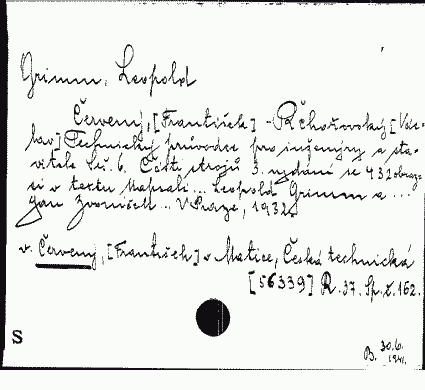 Grimm, Leopold
Červený, [František] - Řehořovský [Vác-
lav] Technický průvodce pro inženýry a sta-
vitele. Seš. 6. Části strojů 3. vydání se 432 obraz-
si v textu Napsali ... Leopold Grimm a ...
Jan Zvoníček .. V Praze, 1932.
v. Červený, [František] v Matice, Česká technická
[56339] R. 37. Sp. č. 162.
S
B. 30.6.
1941.